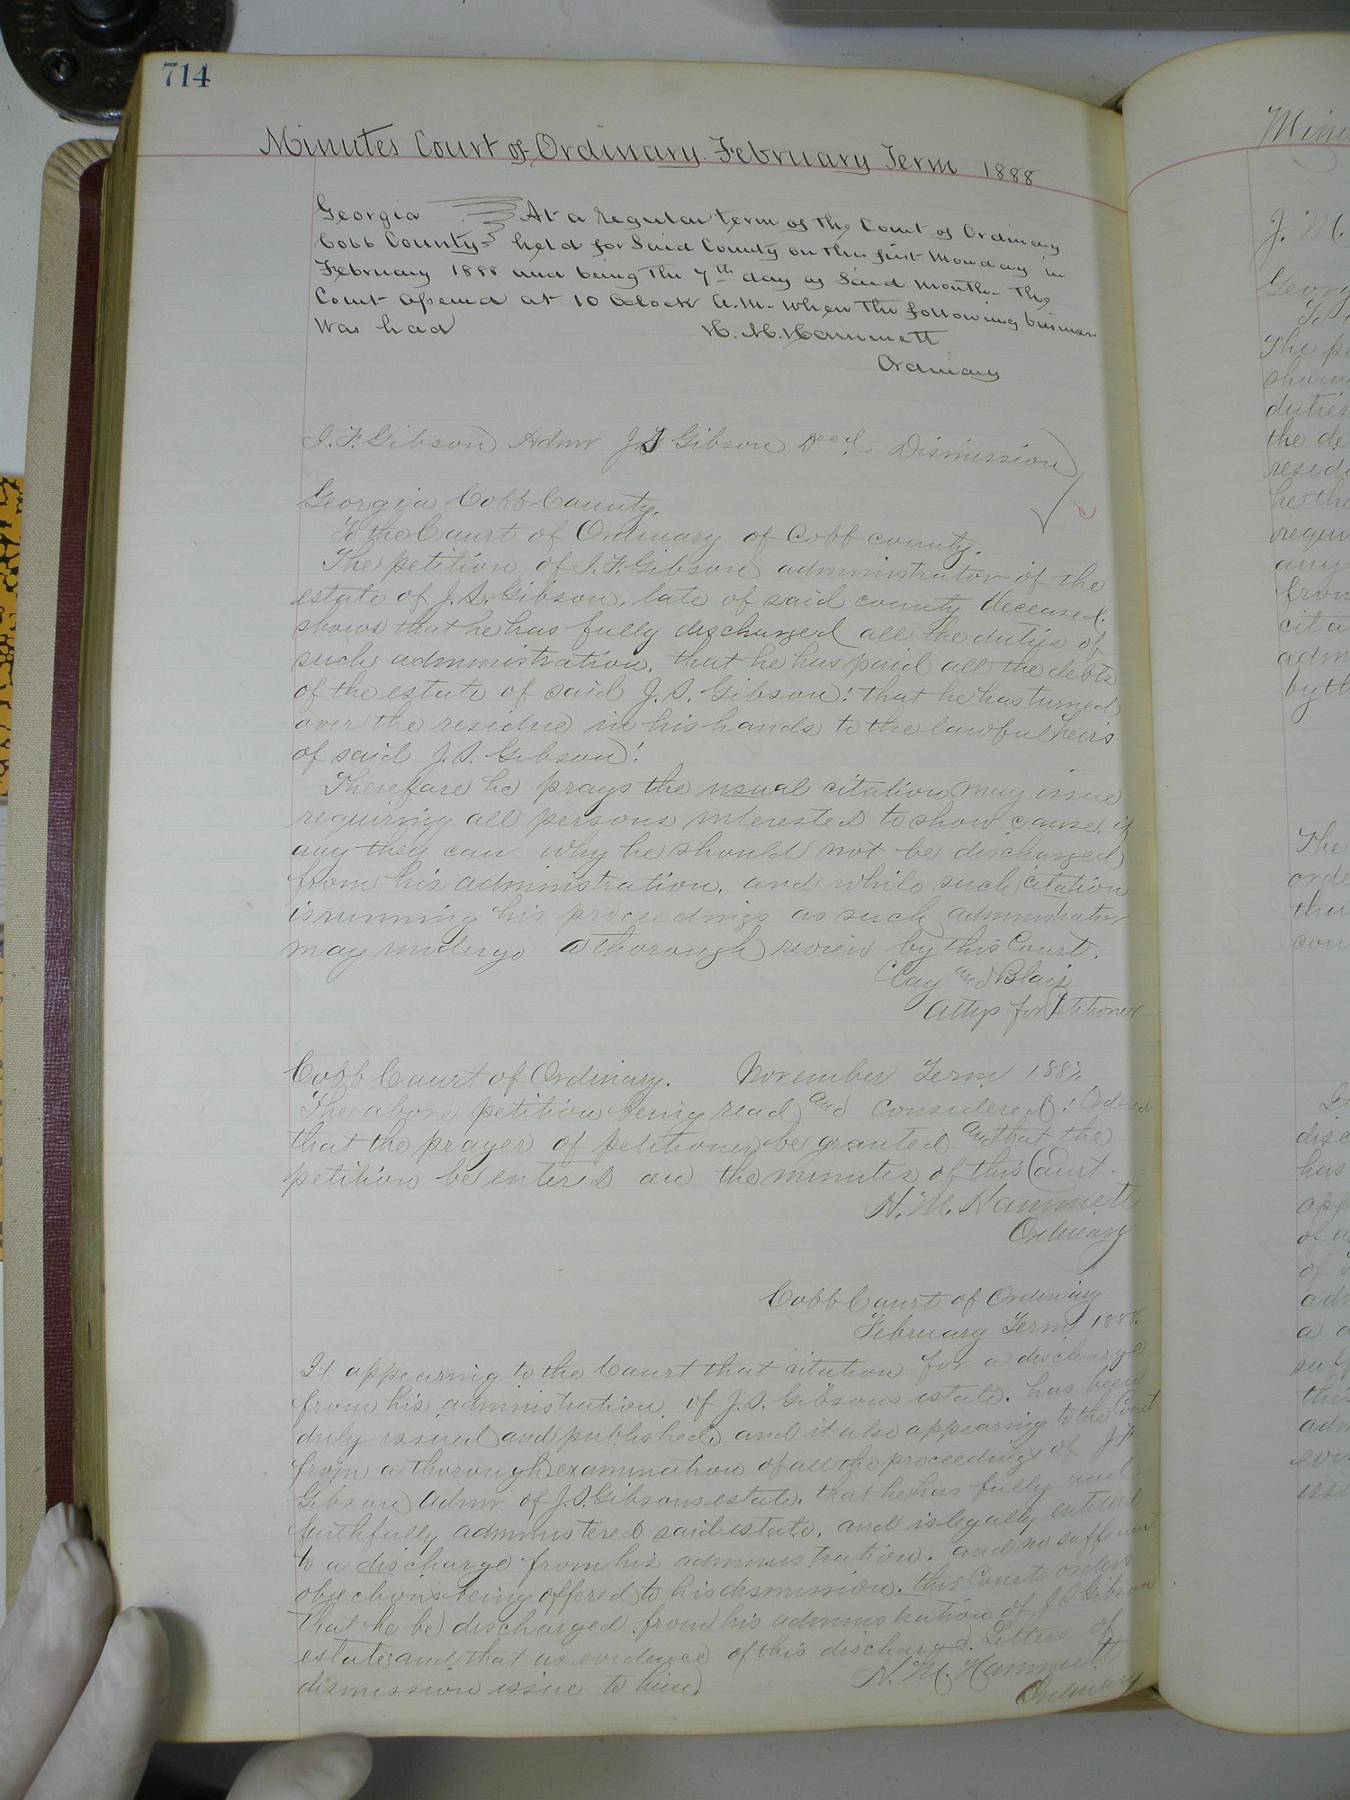 714
Minutes Court of Ordinary February Term 1888
Georgia At a regular term of the Court of Ordinary
Cobb County held for Said County on the first Monday in
February 1888 and being the 7th day of Said Month. The
Court opened at 10 Oclock A.M. when the following business
Was had H. M. Hammett
Ordinary
J. F. Gibson Admr J S Gibson Decd. Dismission
Georgia Cobb County.
To the Court of Ordinary of Cobb county.
The petition of J. F. Gibson administrator of the
estate of J. S. Gibson, late of said county deceased.
shows that he has fully discharged all the duties of
such administration, that he has paid all the debts
of the estate of said J. S. Gibson! that he has turned
over the residue in his hands to the lawful heirs
of said J. S. Gibson!
Therefore he prays the usual citation may issue
requiring all persons interested to show cause, if
any they can why he should not be discharged
from his administration, and while such citation
is running his proceedings as such administrator
may undergo a thorough review by this Court.
Clay and Blair
Attys for Petitioner
Cobb Court of Ordinary. November Term 1887.
The above petition being read and considered! Ordered
that the prayer of petitioner be granted and that the
petition be entered on the minutes of this Court.
H. M. Hammett
Ordinary
Cobb Court of Ordinary
February Term 1888.
It appearing to the Court that citation for a discharge
from his administration, of J. S. Gibsons estate. has been
duly issued and published, and it also appearing to the Court
from a thorough examination of all the proceedings of J F
Gibson Admr of J. S. Gibsons estate, that he has fully and
faithfully administered said estate, and is legally entitled
to a discharge from his administration, and no sufficient
objections being offered to his dismission. this Courts orders
that he be discharged from his administration of J S Gibson
estate and that as evidence of this discharge. Letters of
dismission issue to him H. M. Hammett
Ordinary
J. M.
The